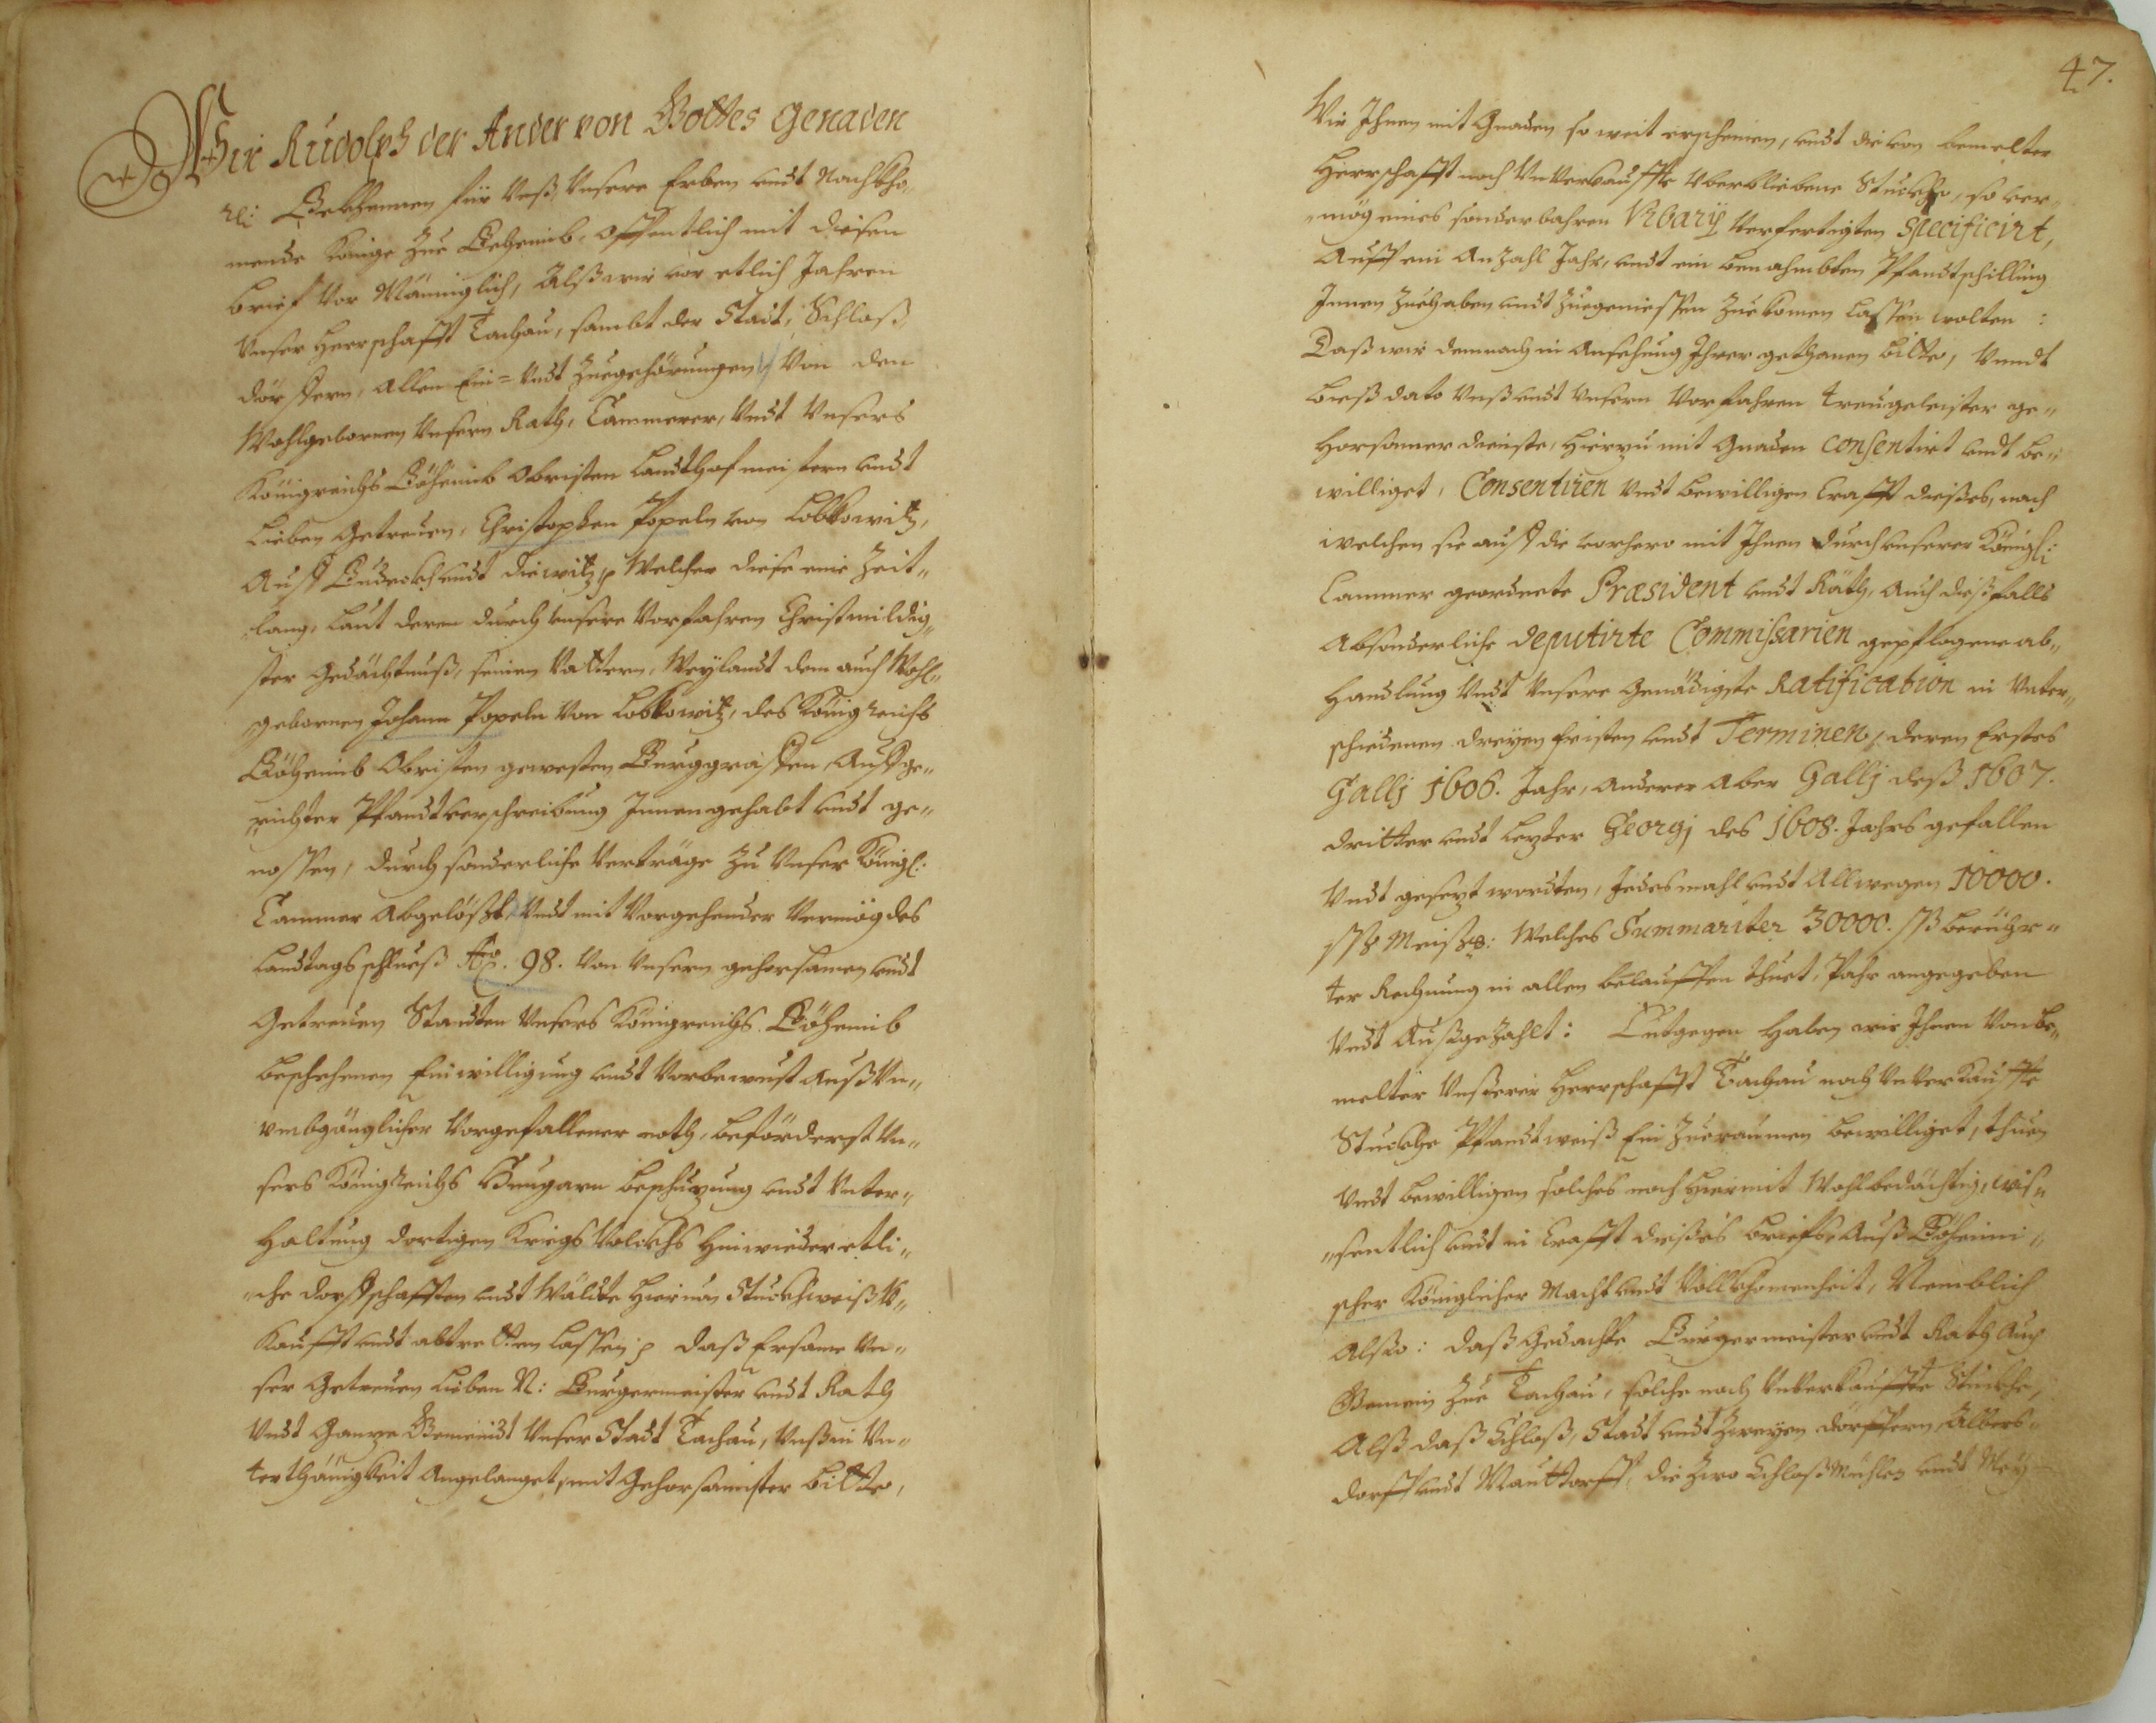 Wir Rudolph der Ander von Gottes genaden
rc: Bekhennen für Unß, Unsere Erben undt Nachkho„
mende Könige zue Beheimb, offentlich mit diesen
brief vor Männiglich, Alß wir vor etlich Jahren
Unser Herrschafft Tachau, sambt der Stadt, Schloß
dörffern, allen Ein= undt Zuegehörungen, Von den
Wohlgebornen Unsern Rath, Cammerer, Undt Unsers
Königreichs Böheimb Obristen Landthofmeistern undt
Lieben Getreuen, Christophen Popeln von Lobkowitz,
Auff undt Diewitz, Welcher diese eine Zeit„
lang, Laut deren durch unsere Vorfahren Christmildig„
ster Gedächtnuß, seinen Vattern, Weylandt dem auch Wohl„
gebornen Johann Popeln Von Lobkowitz, des Königreichs
Böheimb Obristen gewesten Burggraffen, Auffge„
richter Pfandtverschreibung Innen gehabt undt ge„
nossen, durch sonderliche Verträge zu Unser Königl:
Cammer Abgelößt, Undt mit Vorgehender Vermög des
Landtagsschlueß Ao. 98. Von Unsern gehorsamen undt
Getreuen Standten Unsers Königreichs Böheimb
beschehenen Einwilligung undt Vorbewust auß Un„
umbgänglicher Vorgefallener noth, beförderst Un„
sers Königreichs Hungarn beschuzung undt Unter„
haltung dortigen Kriegs Volckhs hinwieder etli„
che dorffschafften undt Wäldte hiervon Stuckhweiß V„
Kaufft undt abtretten lassen, daß Ersame Un„
ser Getreuen Lieben N: Burgermeister undt Rath
Undt Ganze Gemeindt Unser Stadt Tachau, Unß in Un„
terthänigkeit angelanget, mit Gehorsamster bitte,
47.
Wir Ihnen mit Gnaden so weit erscheinen, undt die von bemelter
Herrschafft noch Unverkauffte Uberbliebene Stuckhe, so ver„
mög eines sonderbahren Urbarÿ Verfertigten Specificirt,
Auff ein Anzahl Jahr, undt ein benahmbten Pfandtschilling
Innen zuehaben undt zuegeniessen zuekomen lassen wolten:
Daß wir demnach in Ansehung Ihrer gethanen bitte, Undt
bieß dato Unß undt Unsern Vorfahren treugeleister ge„
horsamer dienste, hierzu mit Gnaden consentirt undt be„
williget, Consentiren Undt bewilligen Crafft dießes, nach
welchen sie auff die vorhero mit Ihnen durch unserer Königl:
Cammer geordnete Præsident undt Räth, Auch dießfalls
Absonderliche deputirte Commissarien gepflogene ab„
handlung Undt Unsere Genädigste Ratification in Unter„
schiedenen dreyen fristen undt Terminen, deren Erstes
Gallj 1606. Jahr, Anderer Aber Gallj deß 1607.
dritter undt Lezter Georgj des 1608. Jahrs gefallen
Undt gesezt wordten, Jedesmahl undt Allwegen 10000.
ßß Meißs: Welches Summariter 30000. ßß berühr„
ter Rechnung in allen belauffen thuet, Pahr angegeben
Undt Außgezahlt: Entgegen haben wir Ihnen Von be„
melter Unserer Herrschafft Tachau noch Unverkauffte
Stuckhe Pfandtweiß Ein Zueraumen bewilliget, thuen
Undt bewilligen solches noch hiermit Wohlbedächtig, wis„
„sentlich undt in Crafft dießes briefs, Auß Böheimi„
scher Königlicher Macht undt Vollkhomenheit, Nemblich
Also: daß Gedachte Burgermeister undt Rath Auch
Gemein Zue Tachau, solche noch Unverkauffte Stuckhe,
Alß daß Schloß, Stadt undt Zweyen dörffern, Albers„
dorff undt Mauttorff, die Zwo Schloß Mühlen undt Mey